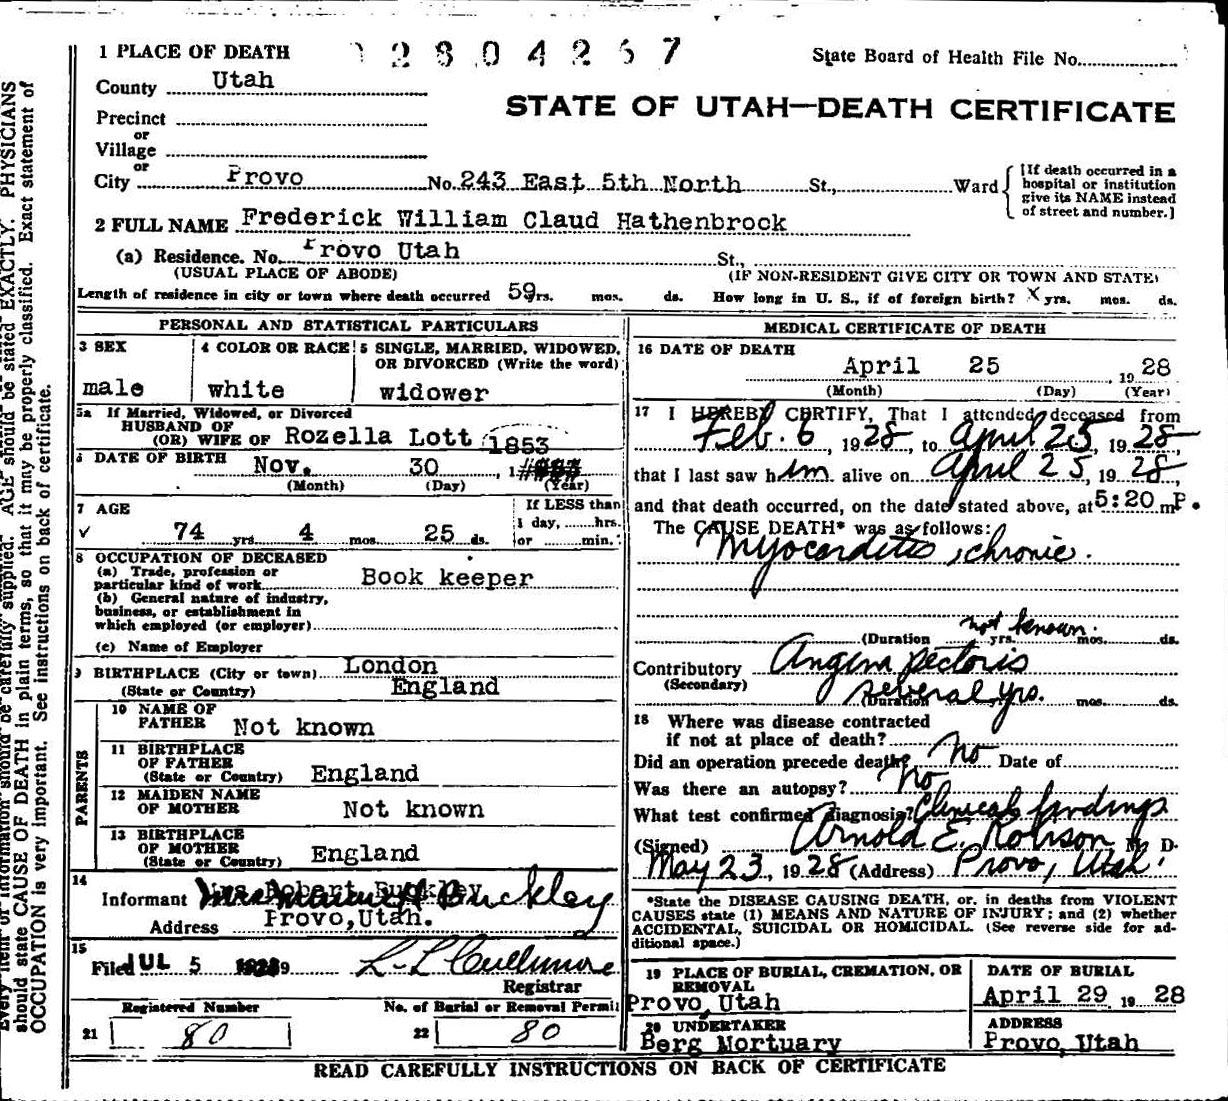 1 PLACE OF DEATH 2804267 State Board of Health File No.
County Utah
STATE OF UTAH—DEATH CERTIFICATE
Precinct
or
Village
or
City Provo No. 243 East 5th North St., Ward
[If death occurred in a hospital or institution give its NAME instead of street and number.]
2 FULL NAME Frederick William Claud Hathenbrock
(a) Residence. No. Provo Utah St.,
(USUAL PLACE OF ABODE) (IF NON-RESIDENT GIVE CITY OR TOWN AND STATE)
Length of residence in city or town where death occurred 59 yrs. mos. ds. How long in U. S., if of foreign birth? x yrs. mos. ds.
PERSONAL AND STATISTICAL PARTICULARS
3 SEX
male
4 COLOR OR RACE
white
5 SINGLE, MARRIED, WIDOWED, OR DIVORCED (Write the word)
widower
5a If Married, Widowed, or Divorced
HUSBAND OF
(OR) WIFE OF Rozella Lott
1853
6 DATE OF BIRTH Nov. 30, 1
(Month) (Day) (Year)
7 AGE
74 yrs. 4 mos. 25 ds.
If LESS than
1 day, hrs.
or min.
8 OCCUPATION OF DECEASED
(a) Trade, profession or
particular kind of work Book keeper
(b) General nature of industry,
business, or establishment in
which employed (or employer)
(c) Name of Employer
9 BIRTHPLACE (City or town) London
(State or Country) England
PARENTS
10 NAME OF
FATHER Not known
11 BIRTHPLACE
OF FATHER
(State or Country) England
12 MAIDEN NAME
OF MOTHER Not known
13 BIRTHPLACE
OF MOTHER
(State or Country) England
14
Informant Mrs Robert Buckley
Address Provo, Utah.
15
Filed JUL 5 L-L Cullimore
Registrar
Registered Number No. of Burial or Removal Permit
21 80 22 80
MEDICAL CERTIFICATE OF DEATH
16 DATE OF DEATH
April 25, 1928
(Month) (Day) (Year)
17 I HEREBY CERTIFY, That I attended deceased from
Feb. 6, 1928, to April 25, 1928,
that I last saw him alive on April 25, 1928,
and that death occurred, on the date stated above, at 5:20 m P.
The CAUSE DEATH* was as follows:
Myocarditis, chronic.
not known.
(Duration yrs. mos. ds.
Contributory Angina pectoris
(Secondary)
several yrs.
(Duration mos. ds.
18 Where was disease contracted
if not at place of death?
Did an operation precede death? No Date of
Was there an autopsy? No
What test confirmed diagnosis? Clinical findings
(Signed) Arnold E. Robison M. D.
May 23, 1928 (Address) Provo, Utah.
*State the DISEASE CAUSING DEATH, or, in deaths from VIOLENT
CAUSES state (1) MEANS AND NATURE OF INJURY; and (2) whether
ACCIDENTAL, SUICIDAL OR HOMICIDAL. (See reverse side for ad-
ditional space.)
19 PLACE OF BURIAL, CREMATION, OR
REMOVAL
Provo, Utah
DATE OF BURIAL
April 29 1928
20 UNDERTAKER
Berg Mortuary
ADDRESS
Provo, Utah
READ CAREFULLY INSTRUCTIONS ON BACK OF CERTIFICATE
should be carefully supplied. AGE should be stated EXACTLY. PHYSICIANS
should state CAUSE OF DEATH in plain terms, so that it may be properly classified. Exact statement of
OCCUPATION is very important. See instructions on back of certificate.